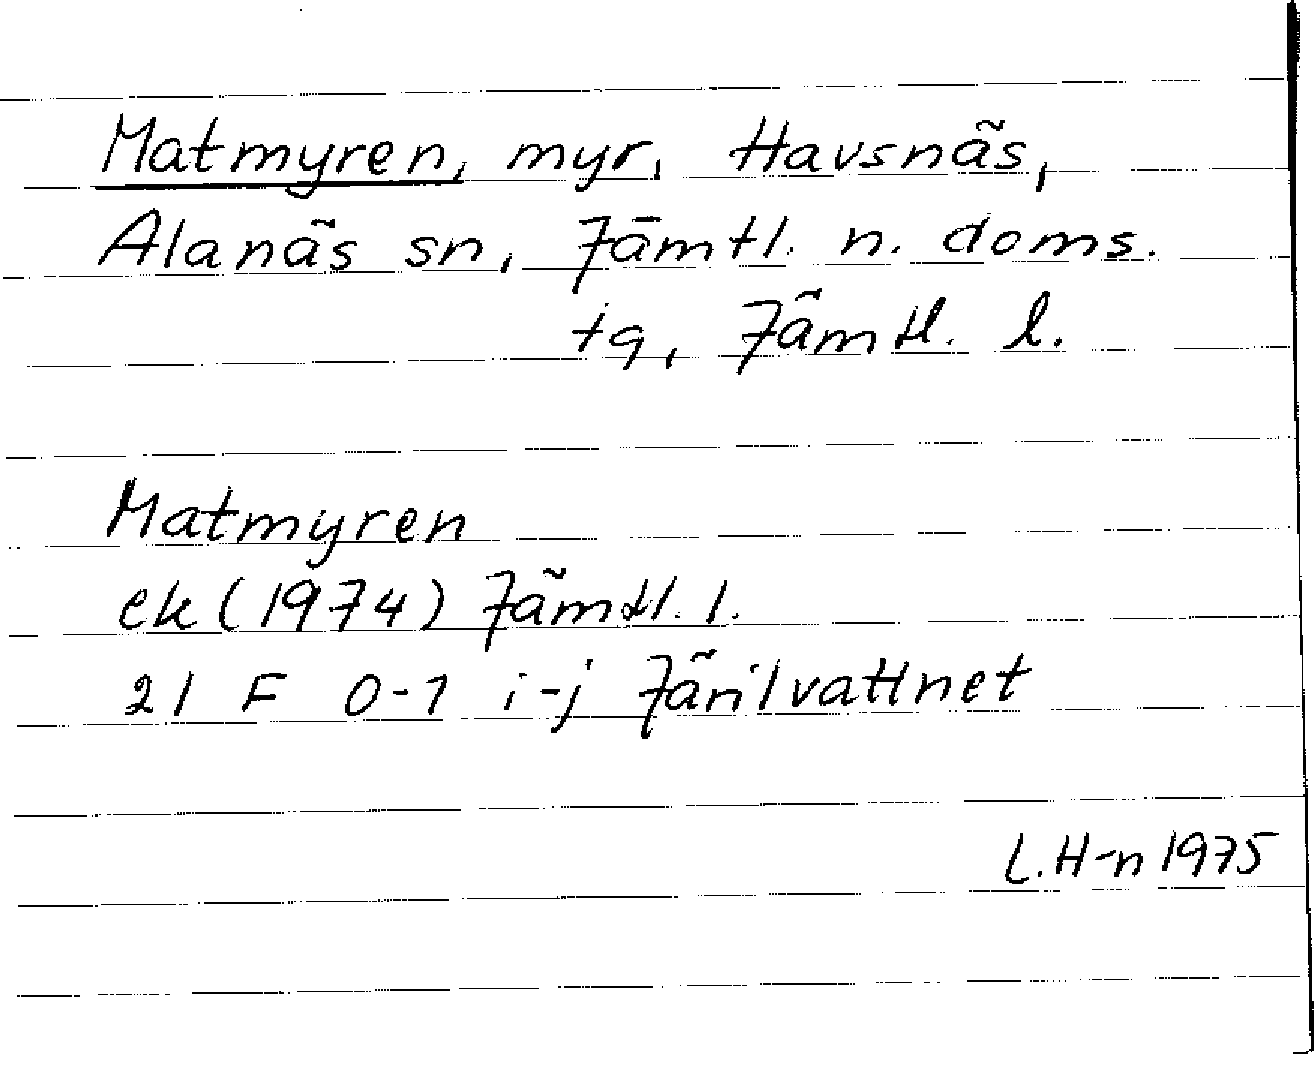 Matmyren, myr, Havsnäs,
Alanäs sn, Jämtl. n. doms.
tg, Jämtl. l.
Matmyren
ek (1974) Jämtl. l.
21 F 0-1 i-j Järilvattnet
L. H-n 1975